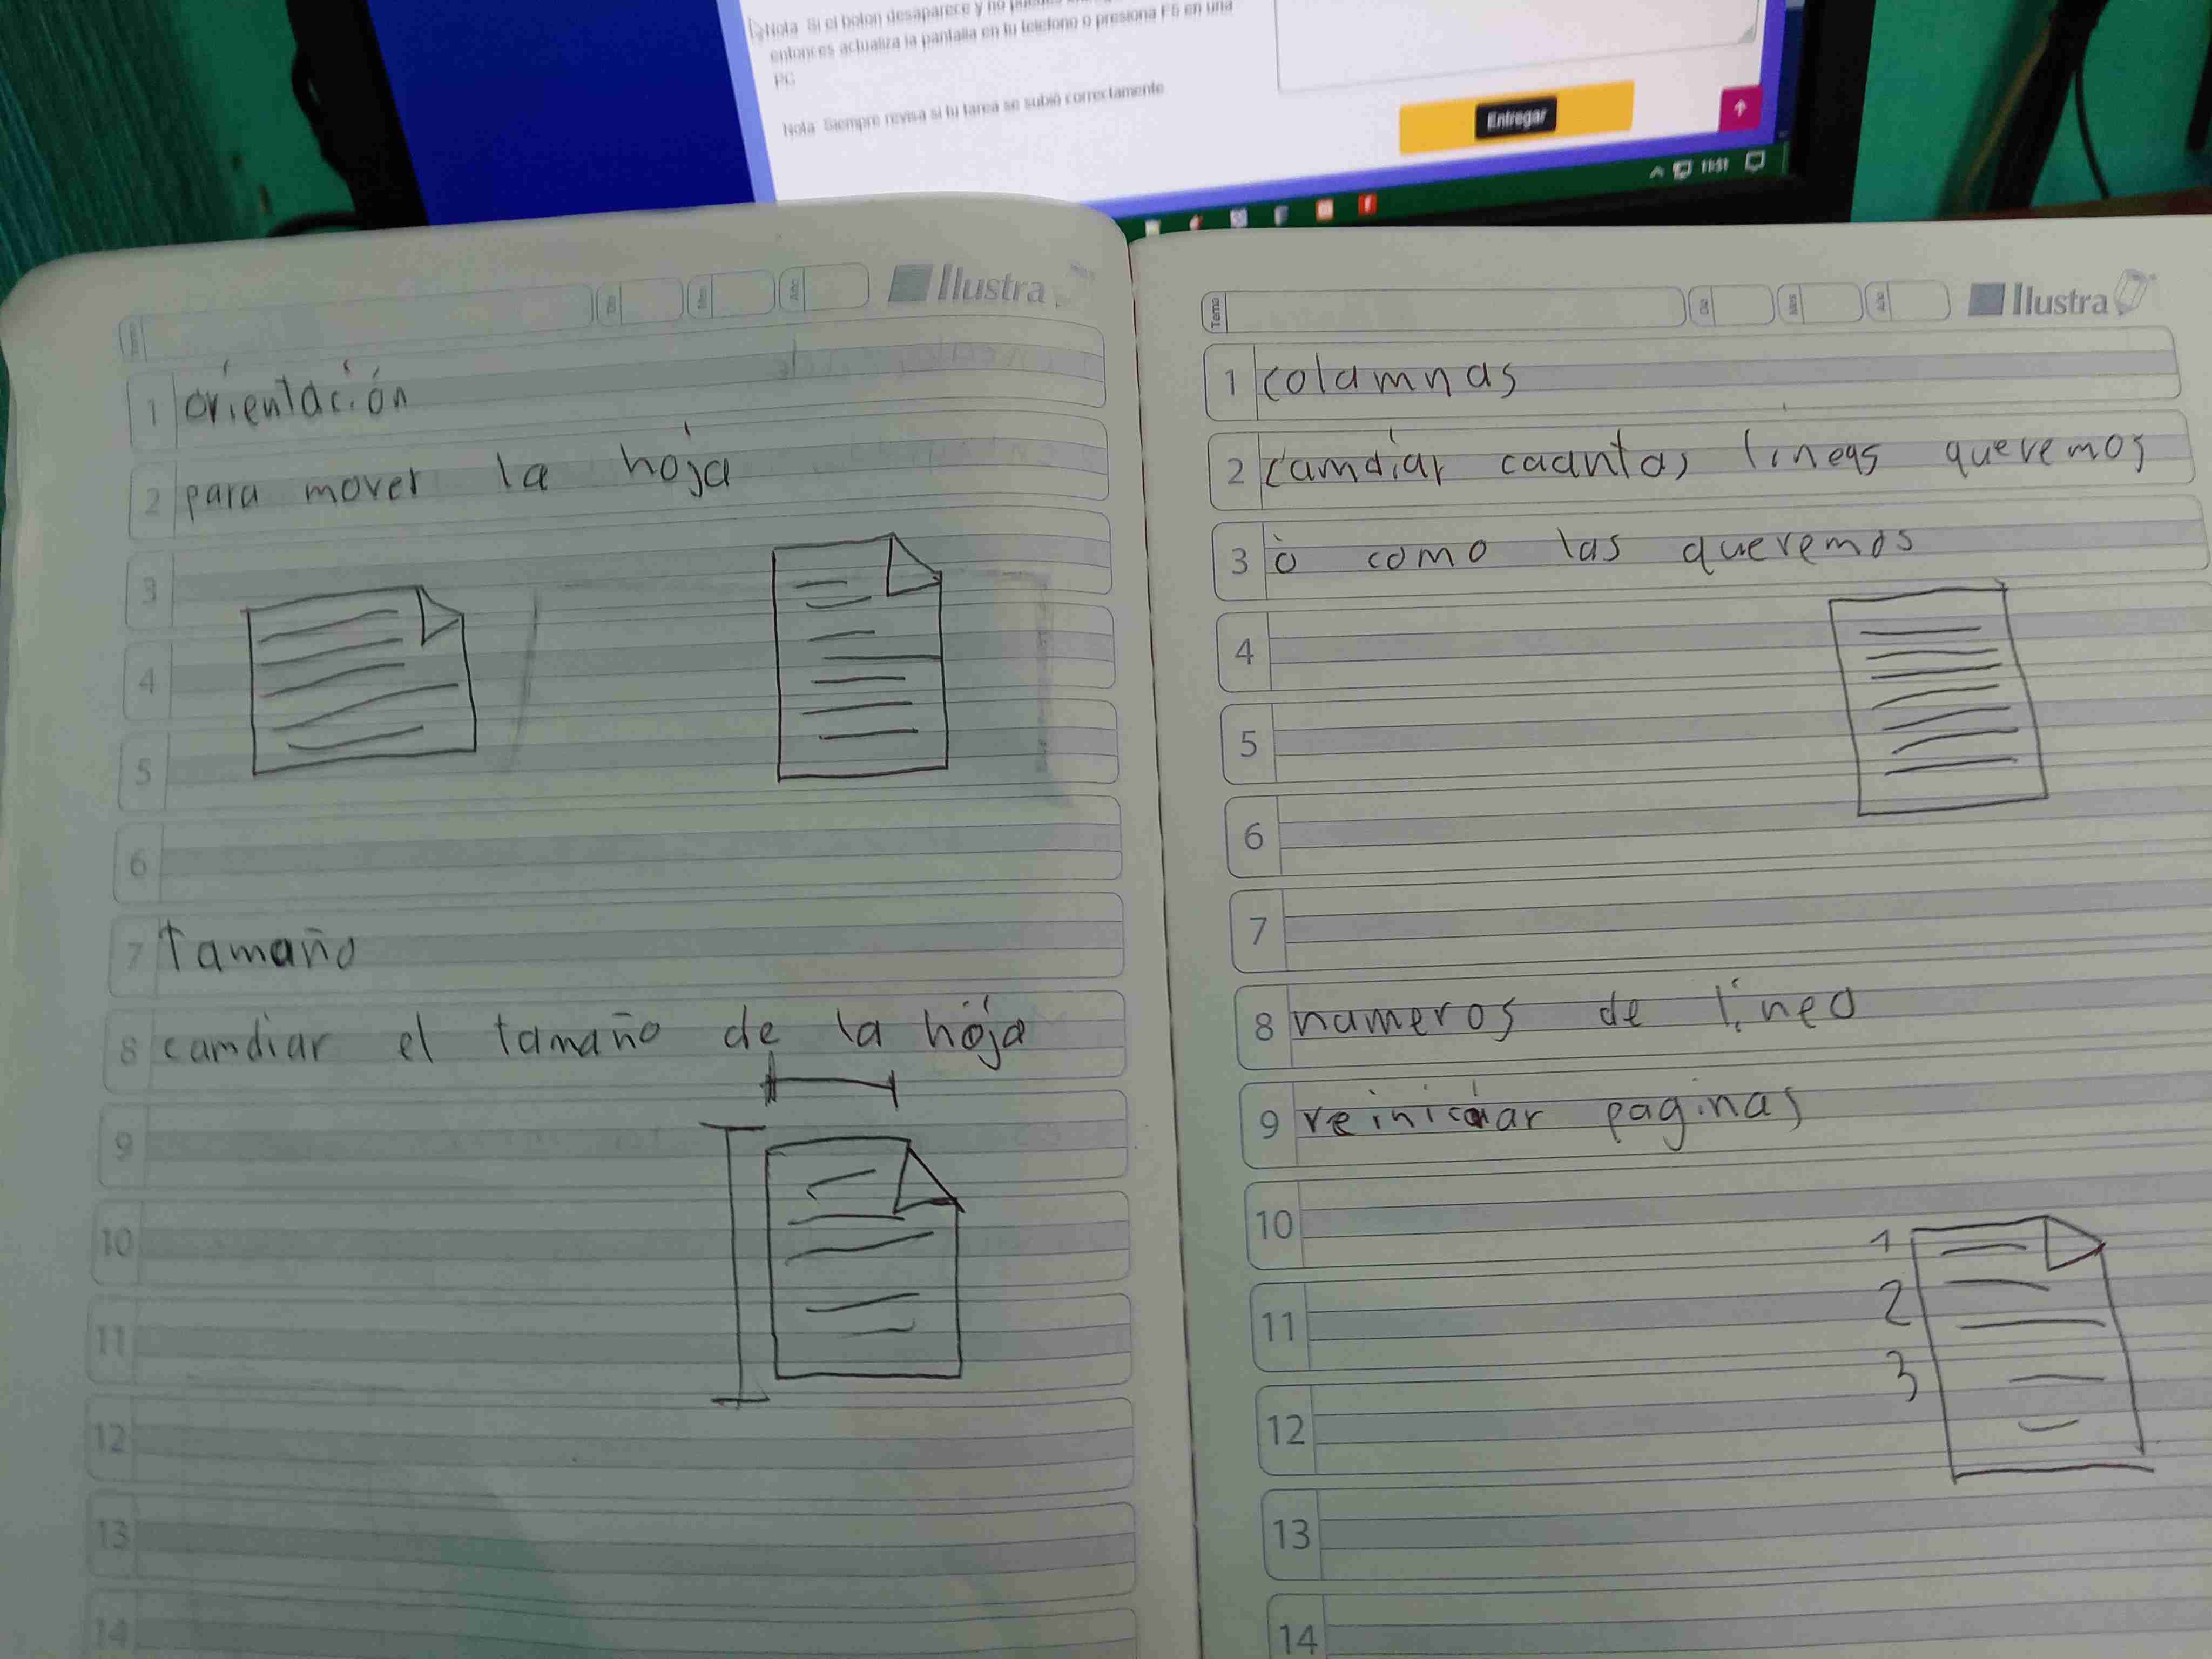 Nota: Si el boton desaparece y no
entonces actualiza la pantalla en tu telefono o presiona F5 en una
PC
Nota: Siempre revisa si tu tarea se subió correctamente
Entregar
11:51
Ilustra
1 orientación
2 para mover la hoja
3
4
5
6
7 Tamaño
8 camdiar el tamaño de la hoja
9
10
11
12
13
14
Tema Día Mes Año Ilustra
1 colamnas
2 camdiar caantas lineas queremos
3 ò como las queremos
4
5
6
7
8 nameros de líneo
9 reiniciar paginas
10
1
2
11
3
12
13
14